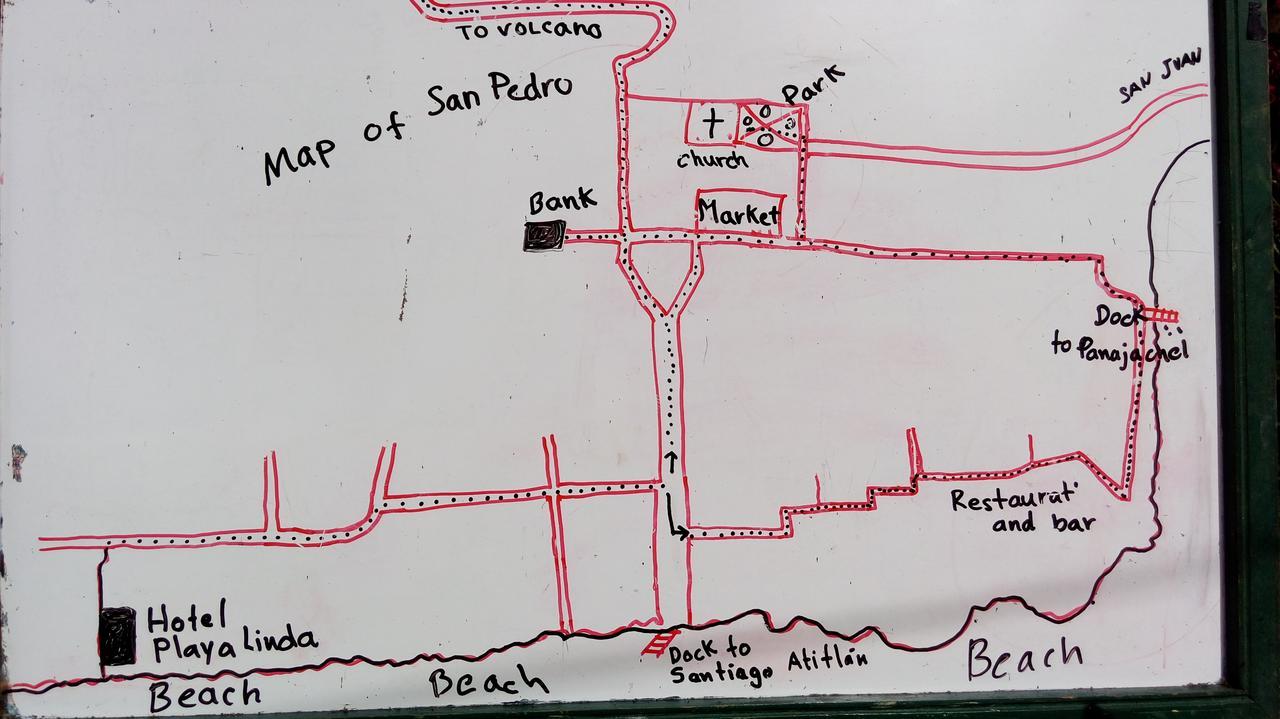 TO VOLCANO
Map of San Pedro
SAN JUAN
Park
church
Bank
Market
Dock
to Panajachel
Restaurat
and bar
Hotel
Playa Linda
Dock to
Santiago Atitlán
Beach
Beach
Beach